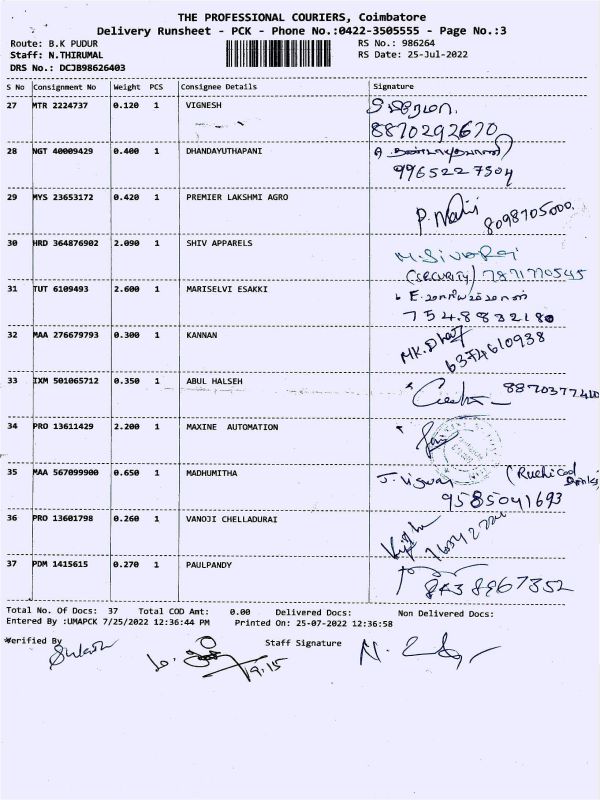 THE PROFESSIONAL COURIERS, Coimbatore
Delivery Runsheet - PCK - Phone No.:0422-3505555 - Page No.:3
Route: B.K PUDUR RS No.: 986264
Staff: N.THIRUMAL RS Date: 25-Jul-2022
DRS No.: DCJB98626403
S No Consignment No Weight PCS Consignee Details Signature
27 MTR 2224737 0.120 1 VIGNESH
8870292670
28 NGT 40009429 0.400 1 DHANDAYUTHAPANI
9965227504
29 MYS 23653172 0.420 1 PREMIER LAKSHMI AGRO
8098705000
30 HRD 364876902 2.090 1 SHIV APPARELS M. SIVARAJ
(SECURITY) 7871770545
31 TUT 6109493 2.600 1 MARISELVI ESAKKI
7548832180
32 MAA 276679793 0.300 1 KANNAN
6374610938
33 IXM 501065712 0.350 1 ABUL HALSEH
34 PRO 13611429 2.200 1 MAXINE AUTOMATION
35 MAA 567099900 0.650 1 MADHUMITHA
9585041693
36 PRO 13601798 0.260 1 VANOJI CHELLADURAI
37 PDM 1415615 0.270 1 PAULPANDY
8438967352
Total No. Of Docs: 37 Total COD Amt: 0.00 Delivered Docs: Non Delivered Docs:
Entered By :UMAPCK 7/25/2022 12:36:44 PM Printed On: 25-07-2022 12:36:58
Verified By Staff Signature
19.15